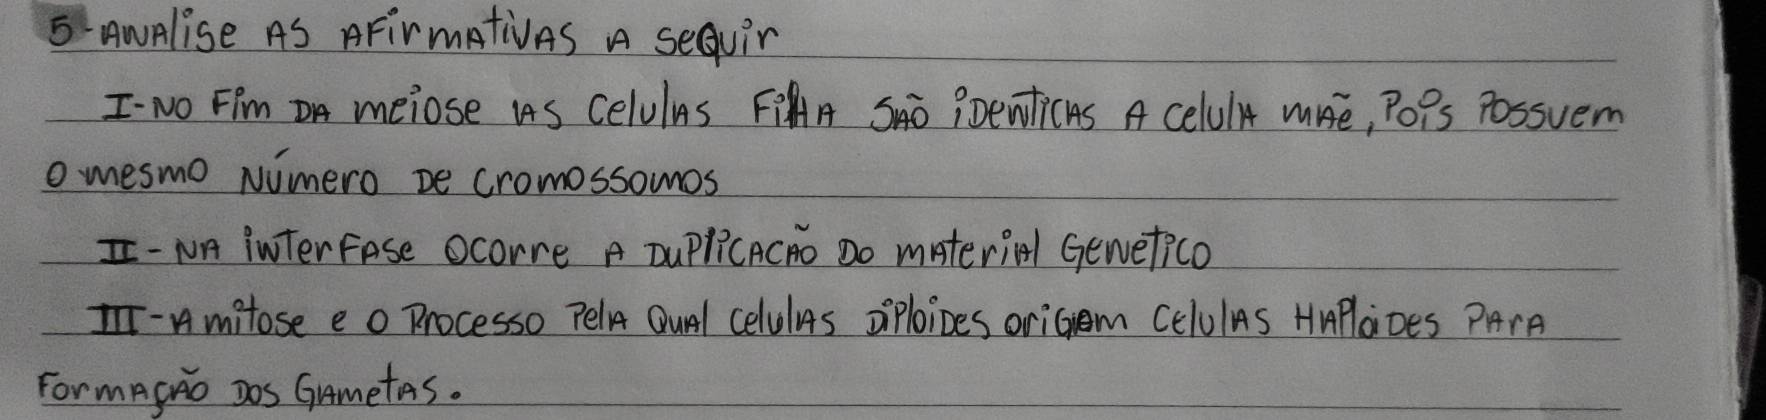 5-ANAlise AS AFirmATiVAS A sequir
I-NO Fim DA meiose AS CelulAS FilhA SÃO iDENTiCAS A celulA mãe, Pois Possuem
O mesmo Número De cromossomos
II-NA iNTerFAse Ocorre A DuPliCACÃO DO mAteriAl GeNetico
III-A mitose e o Processo PelA QuAl celulAS DiPloiDes origem CelulAS HAPloiDes PArA
FormAçÃO DOS GAmetAS.